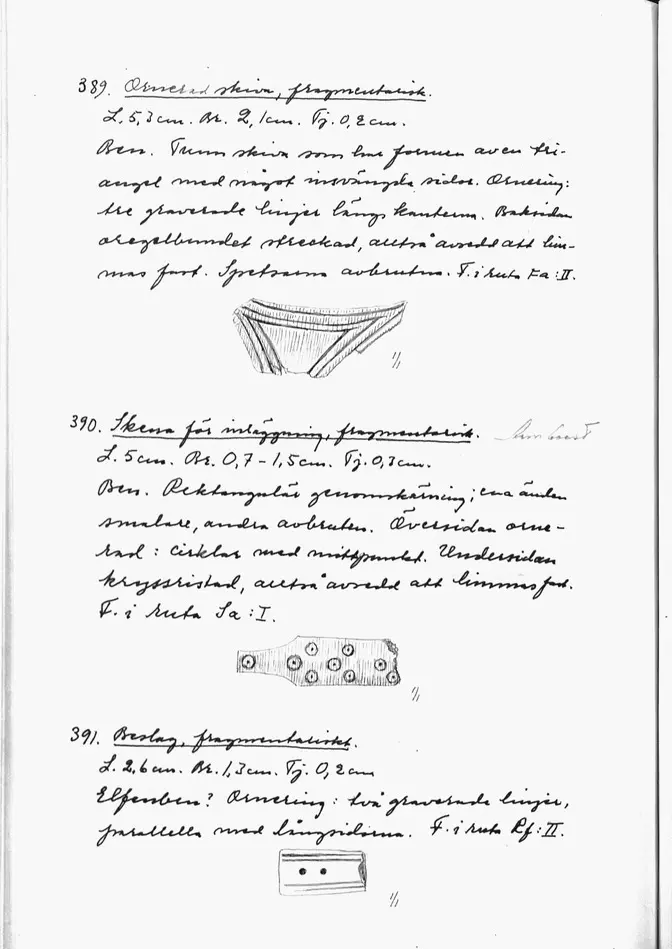 389. Ornerad skiva, fragmentarisk.
L. 5,3cm. Br. 2,1cm. Tj. 0,2cm.
Ben. Tunn skiva som har formen av en tri-
angel med något insvängda sidor. Ornering:
tre graverade linjer längs kanterna. Baksidan
oregelbundet streckad, alltså avsedd att lim-
mas fast. Spetsarna avbrutna. F. i ruta Fa:II.
1/1
390. Skena för inläggning, fragmentarisk.
L. 5cm. Br. 0,7-1,5cm. Tj. 0,3cm.
Ben. Rektangulär genomskärning; ena änden
smalare, andra avbruten. Översidan orne-
rad: cirklar med mittpunkt. Undersidan
kryssristad, alltså avsedd att limmas fast.
F. i ruta Sa:I.
1/1
391. Beslag, fragmentariskt.
L. 2,6cm. Br. 1,3cm. Tj. 0,2cm
Elfenben? Ornering: två graverade linjer,
parallella med långsidorna. F. i ruta Rf:II.
1/1